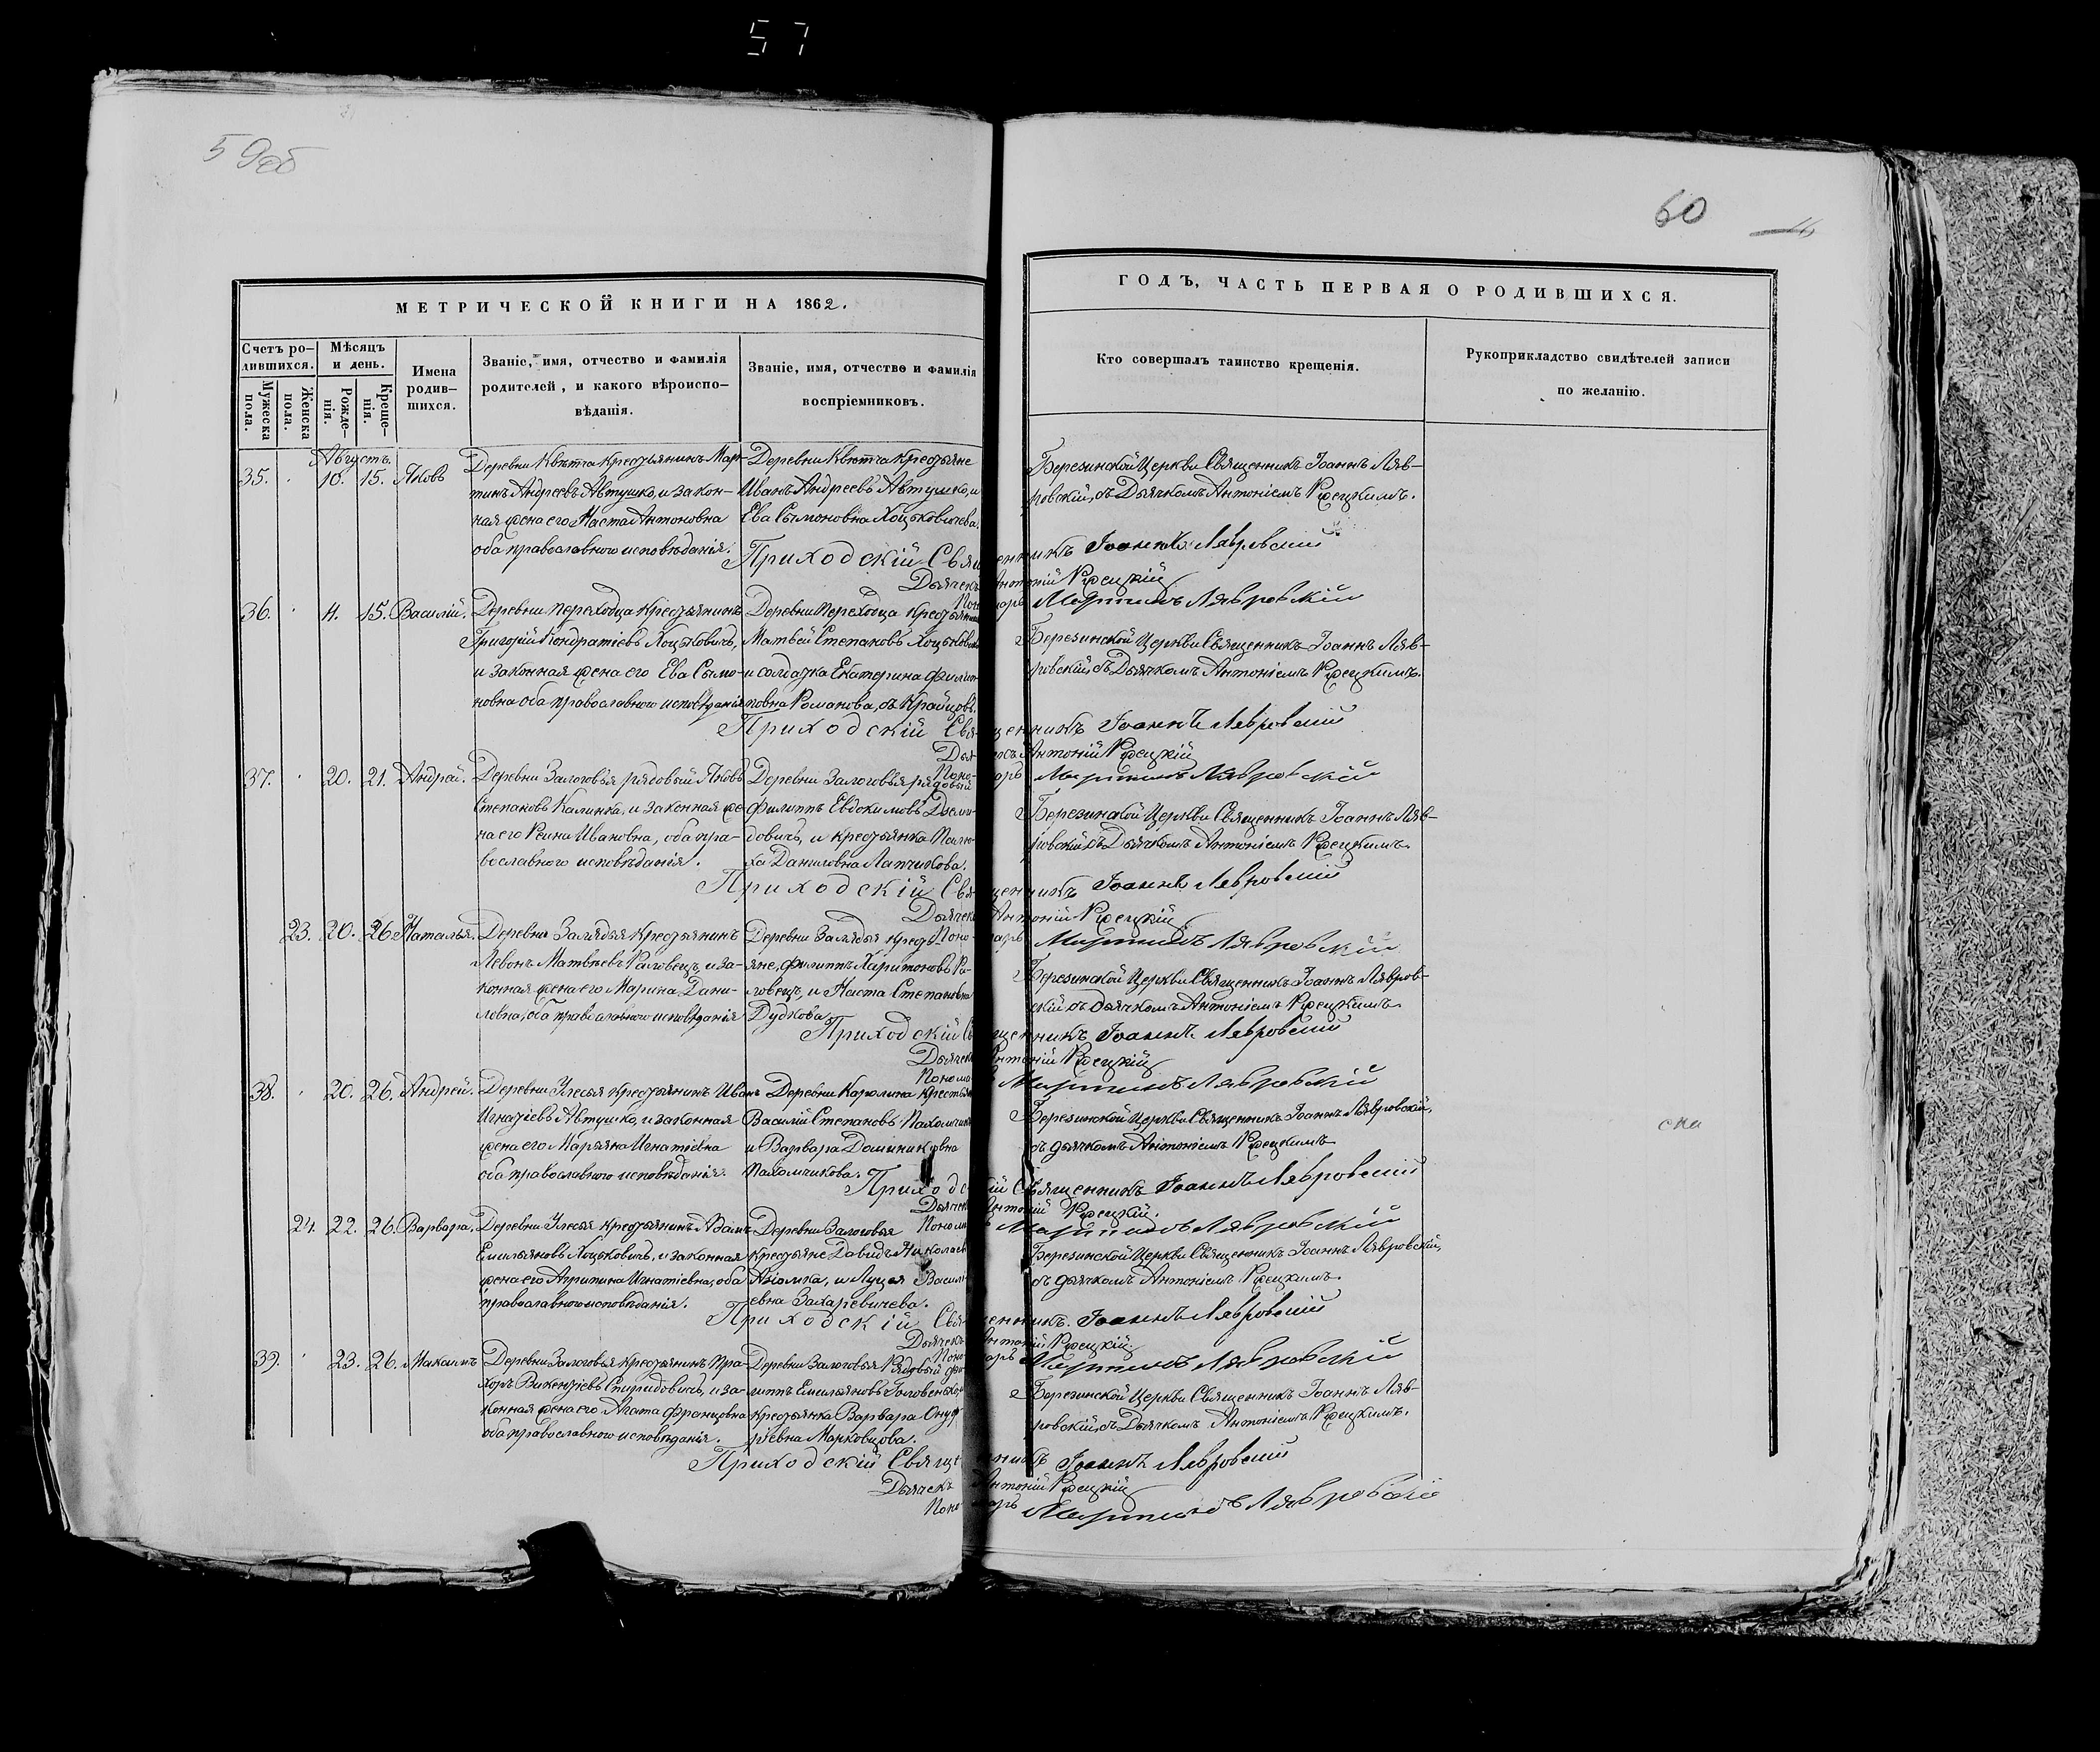 57
59об
60
МЕТРИЧЕСКОЙ КНИГИ НА 1862.
Счетъ ро-
дившихся.
Мужеска
пола.
Женска
пола.
Мѣсяцъ
и день.
Рожде-
нія.
Креще-
нія.
Имена
родив-
шихся.
Званіе, имя, отчество и фамилія
родителей, и какого вѣроиспо-
вѣданія.
Званіе, имя, отчество и фамилія
воспріемниковъ.
ГОДЪ, ЧАСТЬ ПЕРВАЯ О РОДИВШИХСЯ.
Кто совершалъ таинство крещенія.
Рукоприкладство свидѣтелей записи
по желанію.
Августъ.
35. 10. 15. Яковъ
Деревни Квѣтча крестьянинъ Мар-
тинъ Андреевъ Автушко, и закон-
ная жена его Наста Антоновна
оба православного исповѣданія.
Деревни Квѣтча крестьяне
Иванъ Андреевъ Автушко, и
Ева Сымоновна Хоцьковичева.
Березинской Церкви Священникъ Іоаннъ Ляв-
ровскій, съ Дьячкомъ Антоніемъ Ржецкимъ.
Приходскій Священникъ Іоаннъ Лявровскій
Дьячекъ Антоній Ржецкій
Пономарь Мартинъ Лявровскій
36. 11. 15. Василій.
Деревни Переходца Крестьянинъ
Григорій Кондратіевъ Хоцьковичъ,
и законная жена его Ева Сымо-
новна оба православного исповѣданія
Деревни Переходца крестьянинъ
Матвей Степановъ Хоцьковичъ
и солдатка Екатерина Филип-
повна Романова, съ Крайцовъ.
Березинской Церкви Священникъ Іоаннъ Ляв-
ровскій, съ Дьячкомъ Антоніемъ Ржецкимъ.
Приходскій Священникъ Іоаннъ Лявровскій
Дьячекъ Антоній Ржецкій
Пономарь Мартинъ Лявровскій
37. 20. 21. Андрей.
Деревни Залоговья рядовый Яковъ
Степановъ Калинка, и законная же-
на его Реина Ивановна, оба пра-
вославного исповѣданія.
Деревни Залоговья рядовый
Филиппъ Евдокимовъ Дземи-
довичъ, и крестьянка Палю-
ха Даниловна Лапчикова.
Березинской Церкви Священникъ Іоаннъ Ляв-
ровскій съ Дьячкомъ Антоніемъ Ржецкимъ.
Приходскій Священникъ Іоаннъ Лявровскій
Дьячекъ Антоній Ржецкій
Пономарь Мартинъ Лявровскій
23. 20. 26. Наталья.
Деревни Залядья Крестьянинъ
Левонъ Матвѣевъ Раловецъ, и за-
конная жена его Марина Дани-
ловна, оба православного исповѣданія
Деревни Залядья крестья-
яне, Филиппъ Харитоновъ Ра-
ловецъ, и Наста Степановна
Дудкова.
Березинской Церкви Священникъ Іоаннъ Лявров-
скій съ дьячкомъ Антоніемъ Ржецкимъ.
Приходскій Священникъ Іоаннъ Лявровскій
Дьячекъ Антоній Ржецкій
Пономарь Мартинъ Лявровскій
38. 20. 26. Андрей.
Деревни Улесья крестьянинъ Иванъ
Игнатіевъ Автушко, и законная
жена его Марьяна Игнатіевна
оба православного исповѣданія.
Деревни Каролина крестьяне
Василій Степановъ Пахомчикъ
и Варвара Доминиковна
Пахомчикова.
Березинской Церкви Священникъ Іоаннъ Лявровскій,
съ дьячкомъ Антоніемъ Ржецкимъ
Приходскій Священникъ Іоаннъ Лявровскій
Дьячекъ Антоній Ржецкій.
Пономарь Мартинъ Лявровскій
24. 22. 26. Варвара.
Деревни Улесья крестьянинъ Адамъ
Емильяновъ Хоцьковичъ, и законная
жена его Агрипина Игнатіевна, оба
православного исповѣданія.
Деревни Залоговья
крестьяне Давидъ Николаевъ
Акомка, и Луцея Василь-
евна Захаревичева.
Березинской Церкви Священникъ Іоаннъ Лявровскій,
съ дьячкомъ Антоніемъ Ржецкимъ.
Приходскій Священникъ. Іоаннъ Лявровскій
Дьячекъ Антоній Ржецкій
Пономарь Мартинъ Лявровскій
39. 23. 26. Макаимъ
Деревни Залоговья крестьянинъ Про-
хоръ Викентіевъ Спиридовичъ, и за-
конная жена его Агата Францовна
оба православного исповѣданія.
Деревни Залоговья Рядовый Фи-
липпъ Емильяновъ Головенько,
крестьянка Варвара Онуф-
ріевна Марковцова.
Березинской Церкви Священникъ Іоаннъ Ляв-
ровскій, съ Дьячкомъ Антоніемъ Ржецкимъ.
Приходскій Священникъ Іоаннъ Лявровскій
Дьячекъ Антоній Ржецкій
Пономарь Мартинъ Лявровскій